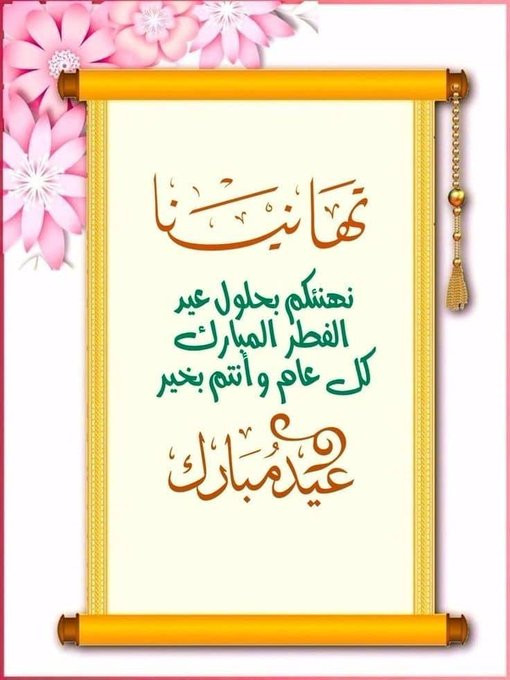 تهانينا
نهنئكم بحلول عيد
الفطر المبارك
كل عام و أنتم بخير
عيد مُبارك